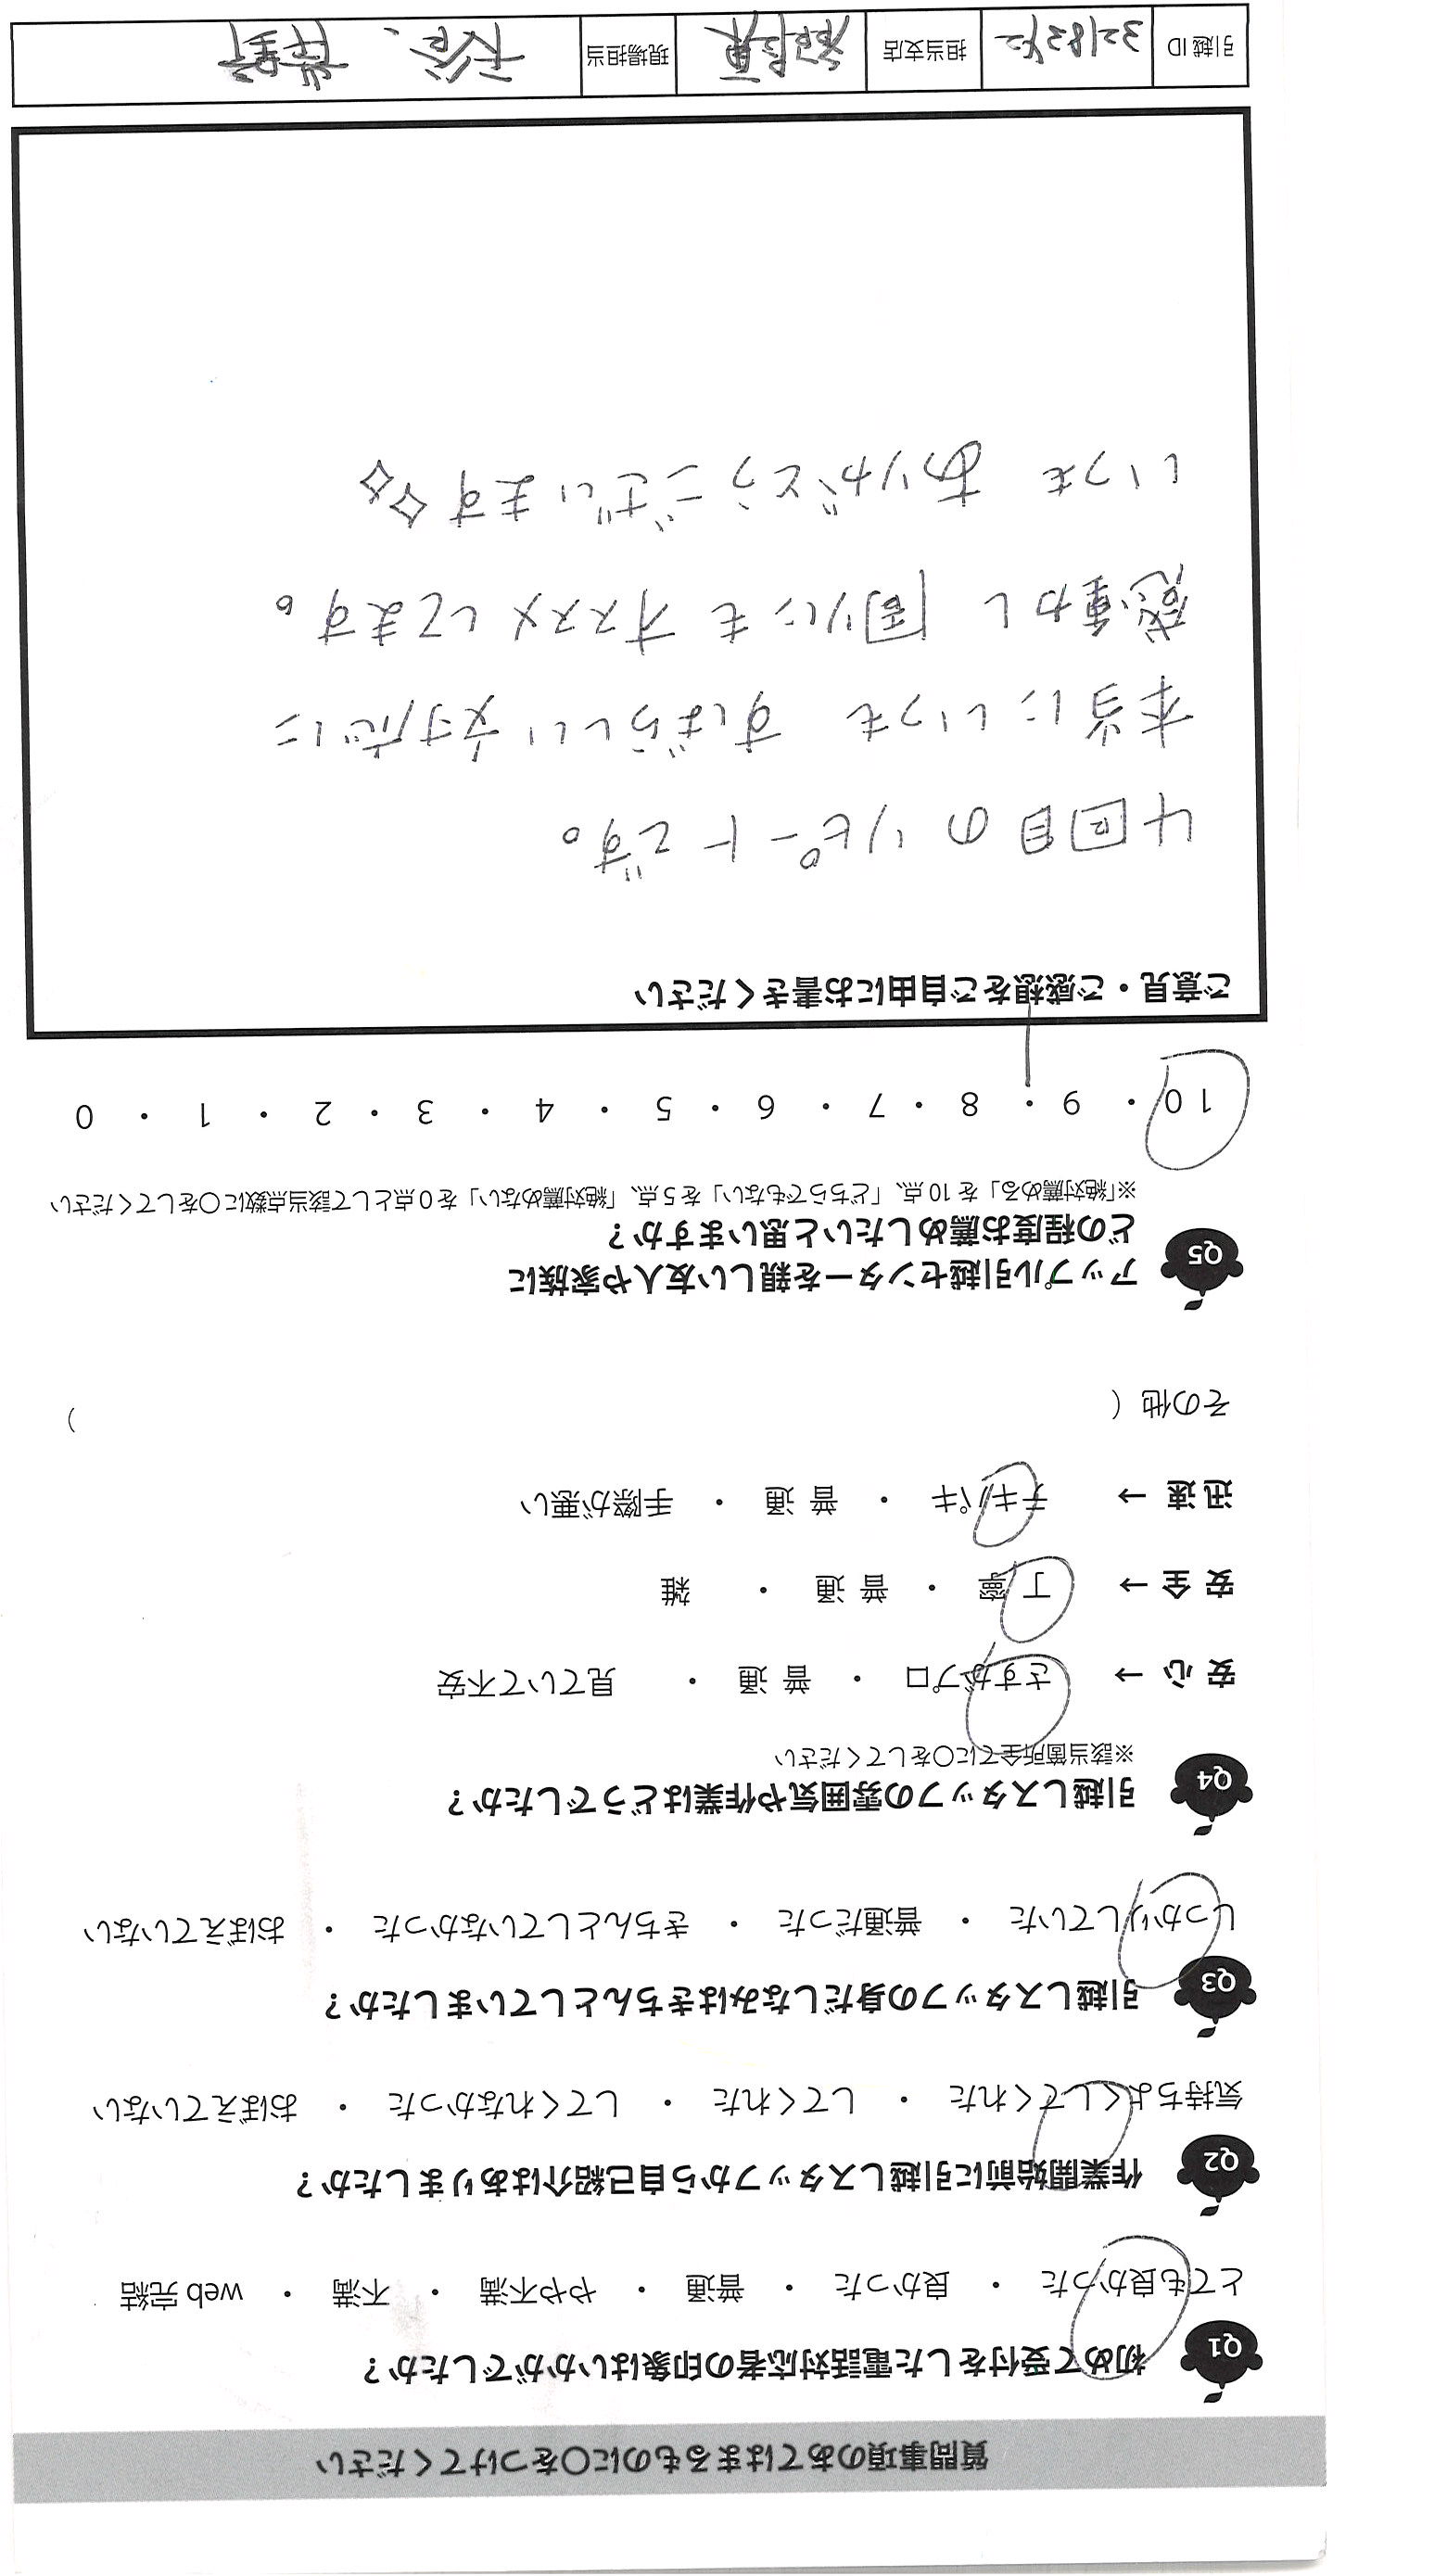 質問事項のあてはまるものに〇をつけてください
Q1 初めて受付をした電話対応者の印象はいかがでしたか？
とても良かった ・ 良かった ・ 普通 ・ やや不満 ・ 不満 ・ web 完結
Q2 作業開始前に引越しスタッフから自己紹介はありましたか？
気持ちよくしてくれた ・ してくれた ・ してくれなかった ・ おぼえていない
Q3 引越しスタッフの身だしなみはきちんとしていましたか？
しっかりしていた ・ 普通だった ・ きちんとしていなかった ・ おぼえていない
Q4 引越しスタッフの雰囲気や作業はどうでしたか？
※該当箇所全てに〇をしてください
安 心 → さすがプロ ・ 普 通 ・ 見ていて不安
安 全 → 丁 寧 ・ 普 通 ・ 雑
迅 速 → テキパキ ・ 普 通 ・ 手際が悪い
その他（ ）
Q5 アップル引越センターを親しい友人や家族に
どの程度お薦めしたいと思いますか？
※「絶対薦める」を 10 点、「どちらでもない」を 5 点、「絶対薦めない」を 0 点として該当点数に〇をしてください
10 ・ 9 ・ 8 ・ 7 ・ 6 ・ 5 ・ 4 ・ 3 ・ 2 ・ 1 ・ 0
ご意見・ご感想をご自由にお書きください
4回目のリピートです。
本当にいつも すばらしい対応に
感動し 周りにも オススメしてます。
いつも ありがとうございます
引越 ID 担当支店 現場担当